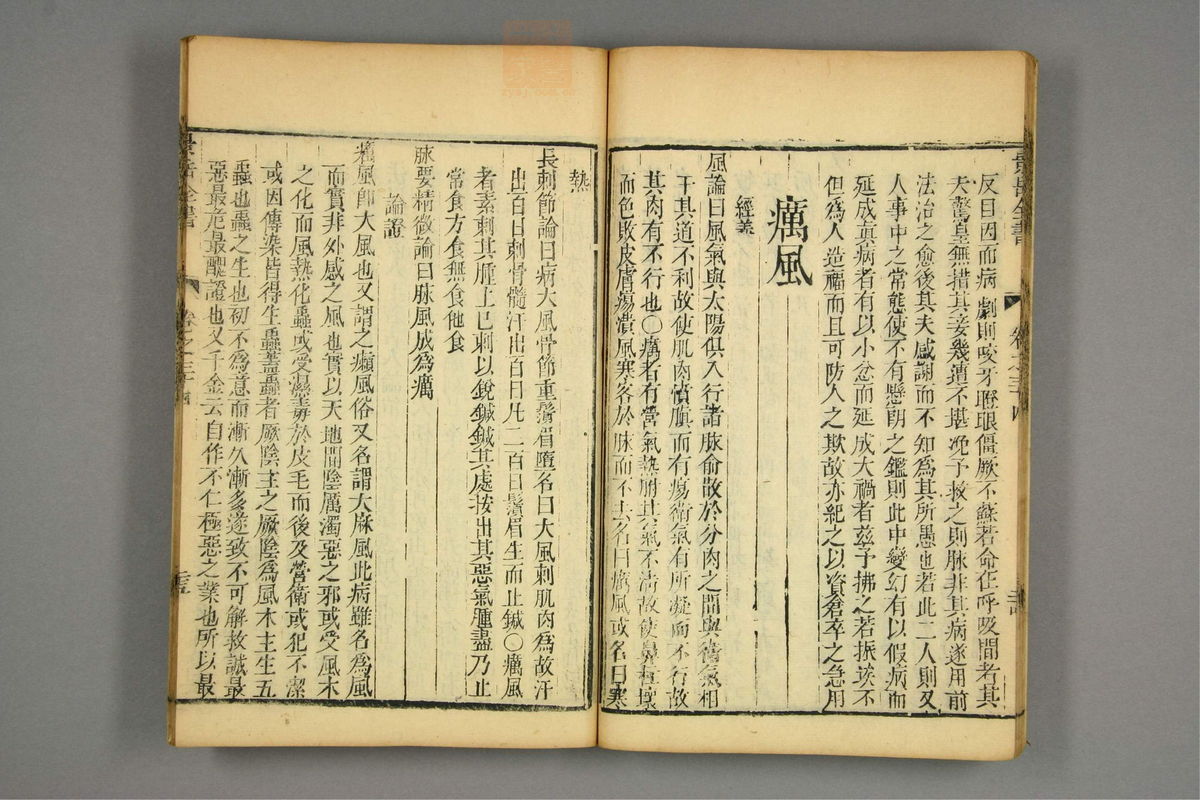 反目因而病劇則咬牙瞪眼僵厥不蘇若命在呼吸間者其
夫驚皇無措其妾幾薄不堪浼予救之則脉非其病遂用前
法治之愈後其夫感謝而不知為其所愚也若此二人則又
人事中之常態使不有懸朗之鑑則此中變幻有以假病而
延成真病者有以小忿而延成大禍者茲予拂之若振埃不
但為人造福而且可防人之欺故亦紀之以資倉卒之急用
癘風
經義
風論曰風氣與太陽俱入行諸脉俞散於分肉之間與衛氣相
干其道不利故使肌肉憤䐜而有瘍衛氣有所凝而不行故
其肉有不行也〇癘者有營氣熱胕其氣不清故使鼻柱壞
而色敗皮膚瘍潰風寒客於脉而不去名曰癘風或名曰寒
熱
長刺節論曰病大風骨節重鬚眉墮名曰大風刺肌肉為故汗
出百日刺骨髓汗出百日凡二百日鬚眉生而止鍼〇癘風
者素刺其腫上已刺以銳鍼鍼其處按出其惡氣腫盡乃止
常食方食無食他食
脉要精微論曰脉風成為癘
論證
癘風即大風也又謂之癩風俗又名謂大麻風此病雖名為風
而實非外感之風也實以天地間陰厲濁惡之邪或受風木
之化而風熱化蟲或受濕毒於皮毛而後及營衛或犯不潔
或因傳染皆得生蟲蓋蟲者厥陰主之厥陰為風木主生五
蟲也蟲之生也初不為意而漸久漸多遂致不可解救誠最
惡最危最醜證也又千金云自作不仁極惡之業也所以最
景岳全書
卷之三十四